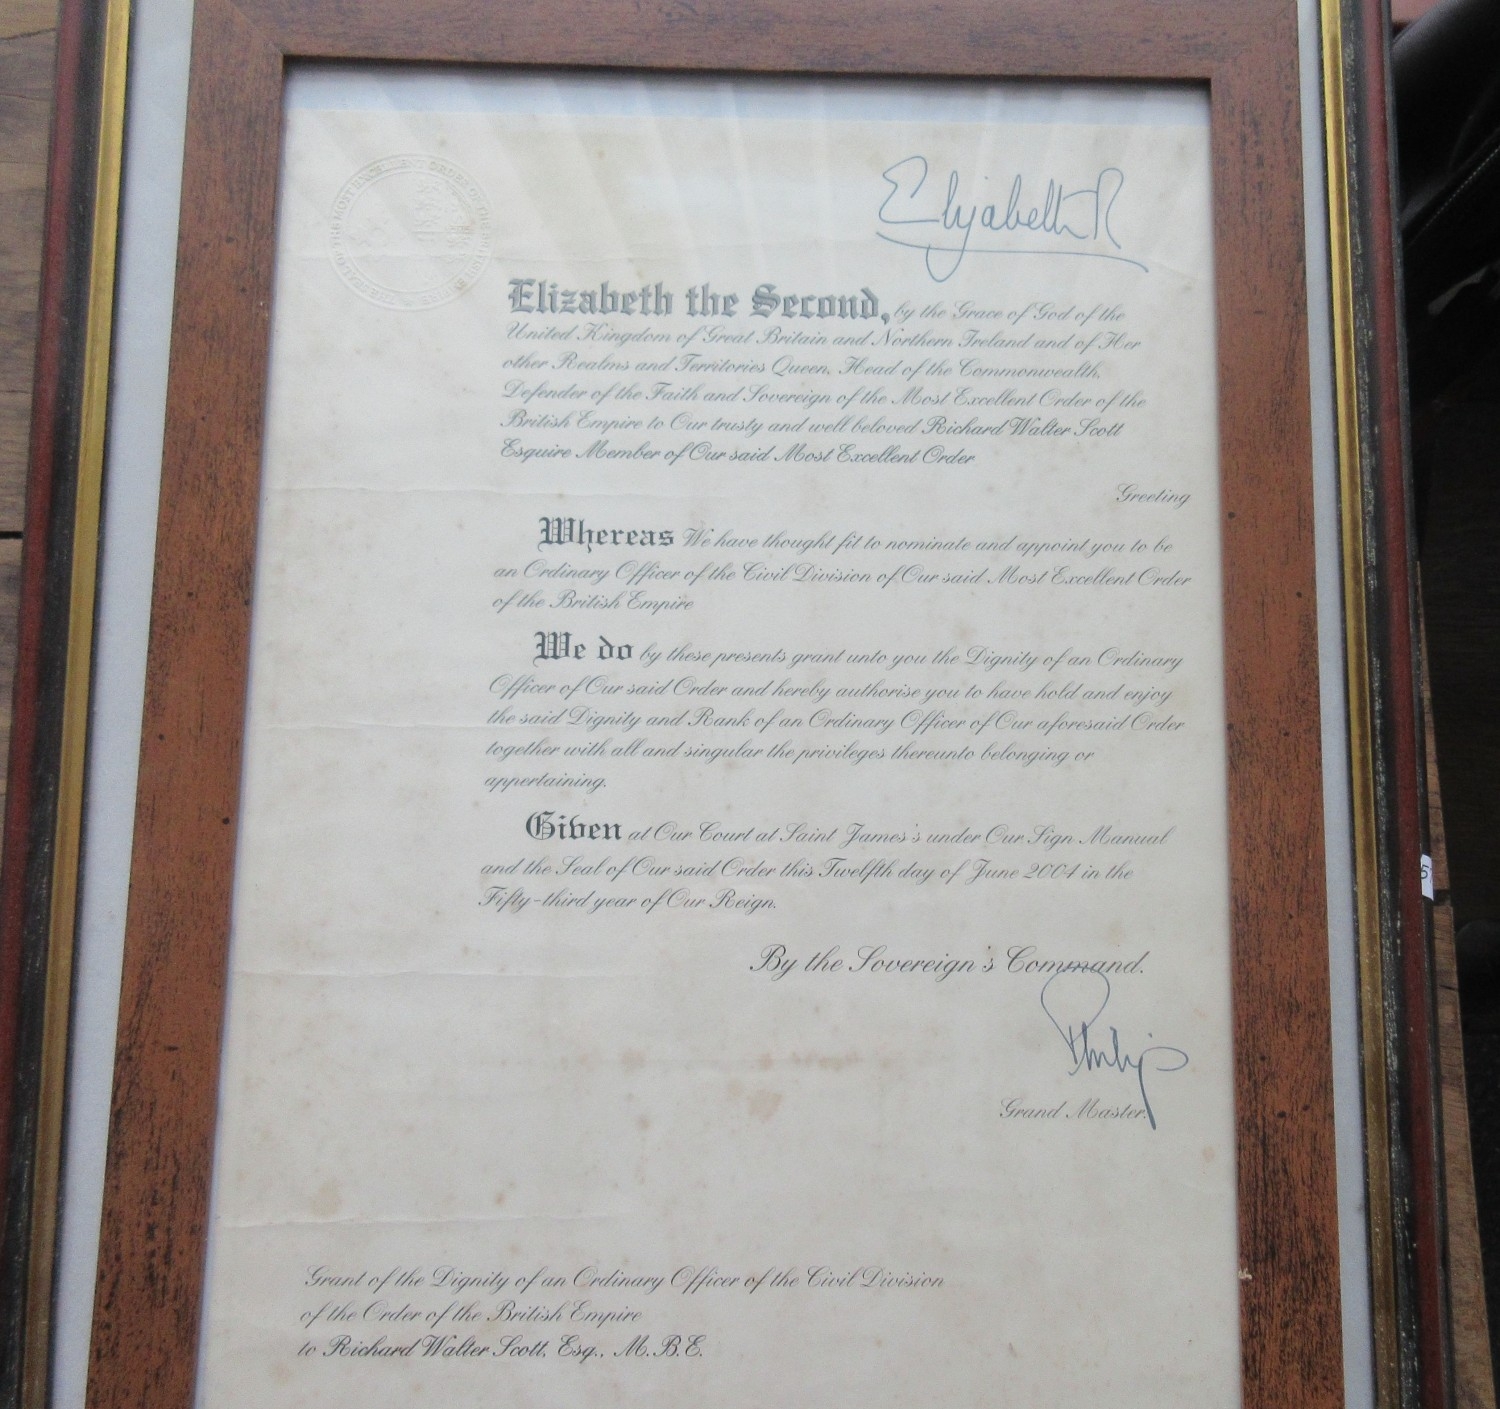 Elizabeth R
Elizabeth the Second, by the Grace of God of the
United Kingdom of Great Britain and Northern Ireland and of Her
other Realms and Territories Queen, Head of the Commonwealth,
Defender of the Faith and Sovereign of the Most Excellent Order of the
British Empire to Our trusty and well beloved Richard Walter Scott
Esquire Member of Our said Most Excellent Order
Greeting
Whereas We have thought fit to nominate and appoint you to be
an Ordinary Officer of the Civil Division of Our said Most Excellent Order
of the British Empire
We do by these presents grant unto you the Dignity of an Ordinary
Officer of Our said Order and hereby authorise you to have hold and enjoy
the said Dignity and Rank of an Ordinary Officer of Our aforesaid Order
together with all and singular the privileges thereunto belonging or
appertaining.
Given at Our Court at Saint James's under Our Sign Manual
and the Seal of Our said Order this Twelfth day of June 2004 in the
Fifty-third year of Our Reign.
By the Sovereign's Command.
Philip
Grand Master.
Grant of the Dignity of an Ordinary Officer of the Civil Division
of the Order of the British Empire
to Richard Walter Scott, Esq., M.B.E.